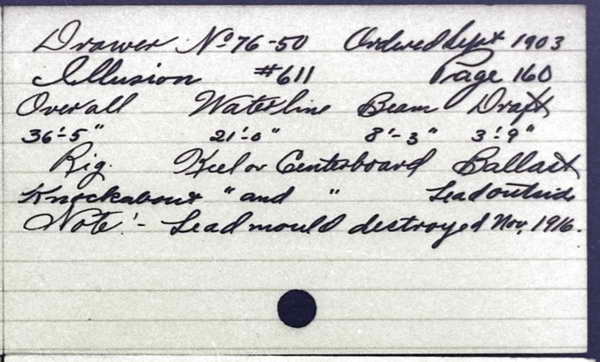 Drawer No 76-50 Ordered Sept 1903
Illusion #611 Page 160
Over all Waterline Beam Draft
36'-5" 21'-0" 8'-3" 3'-9"
Rig. Keel or Centerboard Ballast
Knockabout " and " Lead outside
Note:- Lead mould destroyed Nov. 1916.